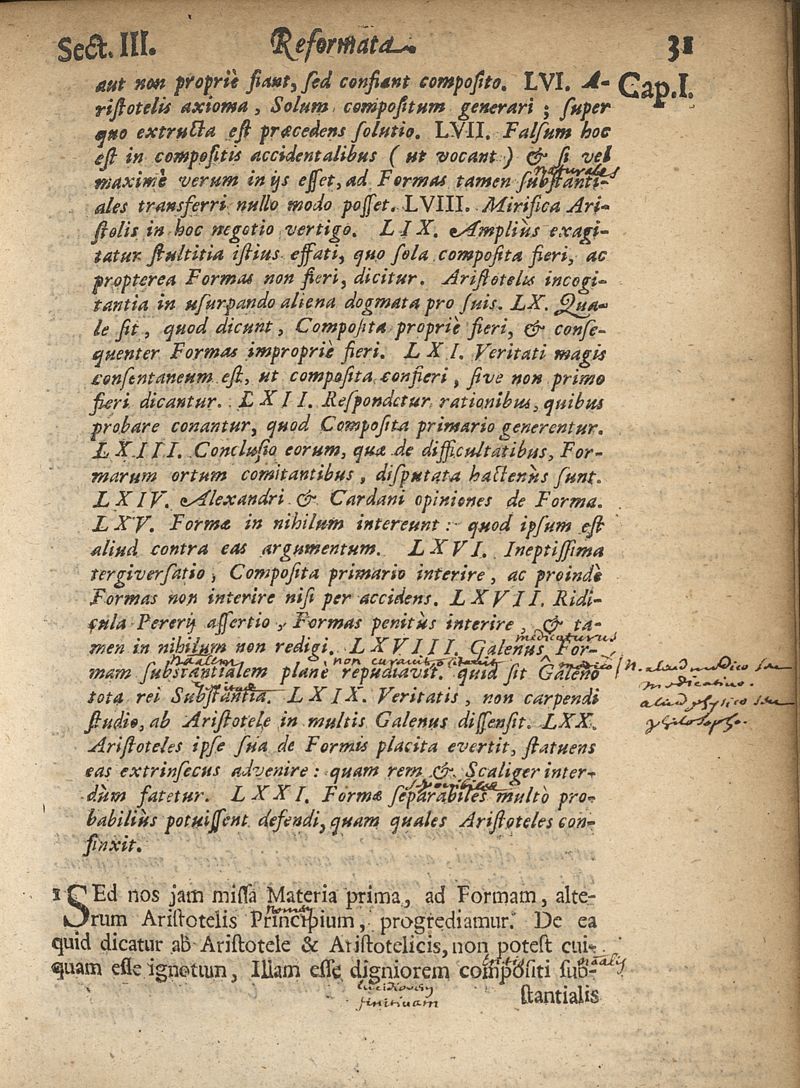 Sect. III. Reformata. 31
Cap. I.
aut non propriè fiant, ſed confiant compoſito. LVI. A-
riſtotelis axioma, Solum compoſitum generari; ſuper
quo extructa eſt præcedens ſolutio. LVII. Falſum hoc
eſt in compoſitis accidentalibus (ut vocant) & ſi vel
naturales
maximè verum in ijs eſſet, ad Formas tamen ſubſtanti-
ales transferri nullo modo poſſet. LVIII. Mirifica Ari-
ſtolis in hoc negotio vertigo. LIX. Ampliùs exagi-
tatur ſtultitia iſtius effati, quo ſola compoſita fieri, ac
propterea Formas non fieri, dicitur. Ariſtotelis incogi-
tantia in uſurpando aliena dogmata pro ſuis. LX. Qua-
le ſit, quod dicunt, Compoſita propriè fieri, & conſe-
quenter Formas impropriè fieri. LXI. Veritati magis
conſentaneum eſt, ut compoſita confieri, ſive non primo
fieri dicantur. LXII. Reſpondetur rationibus, quibus
probare conantur, quod Compoſita primario generentur.
LXIII. Concluſio eorum, quæ de difficultatibus, For-
marum ortum comitantibus, diſputata hactenùs ſunt.
LXIV. Alexandri & Cardani opiniones de Forma.
LXV. Formæ in nihilum intereunt: quod ipſum eſt
aliud contra eas argumentum. LXVI. Ineptiſſima
tergiverſatio, Compoſita primario interire, ac proindè
Formas non interire niſi per accidens. LXVII. Ridi-
cula Pererij aſſertio, Formas penitùs interire, & ta-
men in nihilum non redigi. LXVIII. Galenus For-
medicaturus
mam ſubſtantialem planè repudiavit. quid ſit Galeno
naalem non curavit medico
tota rei Subſtantia. LXIX. Veritatis, non carpendi
ſtudio, ab Ariſtotele in multis Galenus diſſenſit. LXX.
Ariſtoteles ipſe ſua de Formis placita evertit, ſtatuens
eas extrinſecus advenire: quam rem & Scaliger inter-
dùm fatetur. LXXI. Formæ ſeparabiles multò pro-
babiliùs potuiſſent defendi, quam quales Ariſtoteles con-
finxit.
N. aliud medico
aliud physico
philosopho.
1 SEd nos jam miſſa Materia prima, ad Formam, alte-
rum Ariſtotelis Principium, progrediamur. De ea
quid dicatur ab Ariſtotele & Ariſtotelicis, non poteſt cui-
quam eſſe ignotum, Illam eſſe digniorem compoſiti ſub-
ſtantialis